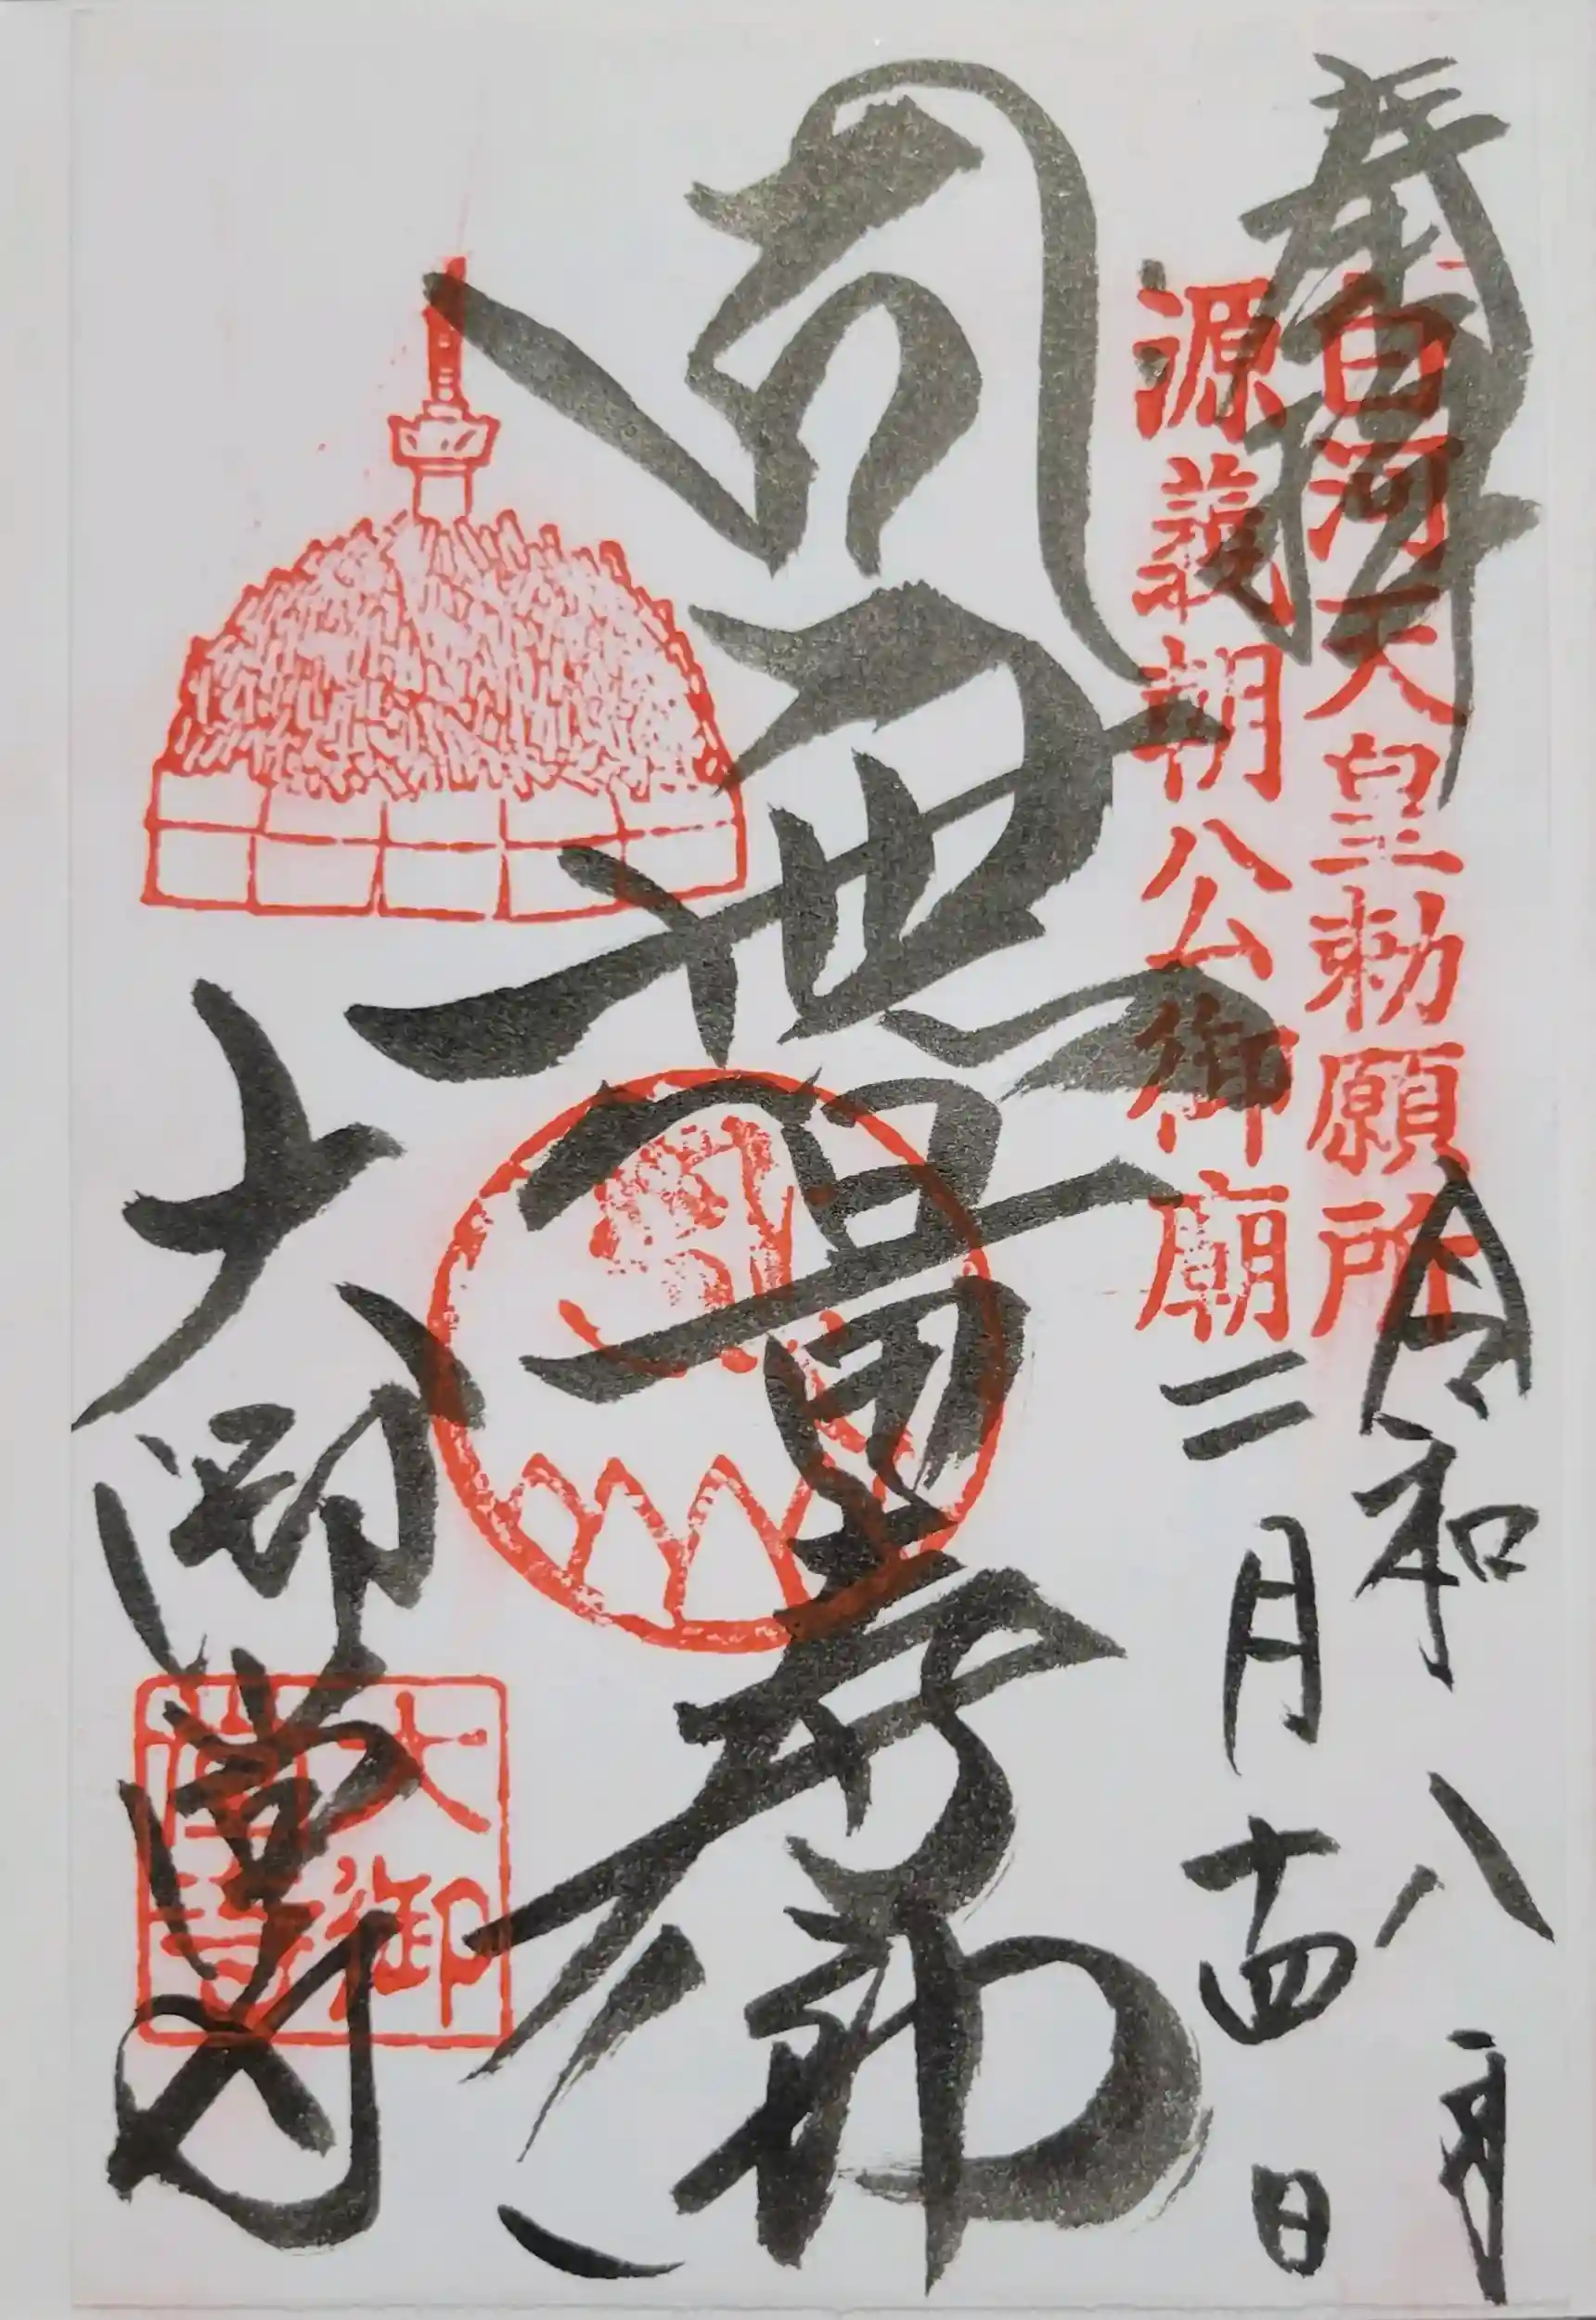 奉拝
白河天皇勅願所
源義朝公御廟
令和八年
二月十四日
無量寿佛
大御堂寺
大御堂寺